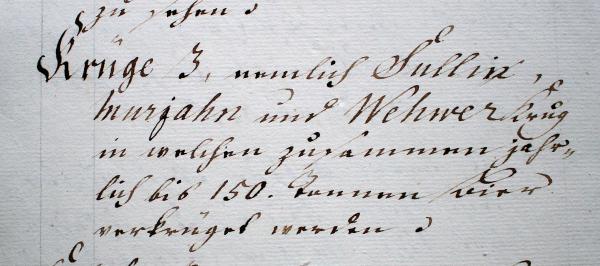 zu sehen.
Krüge 3, nemlich Sullin,
Murjahn und Wehwer Krug
in welchen zusammen jähr-
lich bis 150. Tonnen Bier
verkrüget werden.